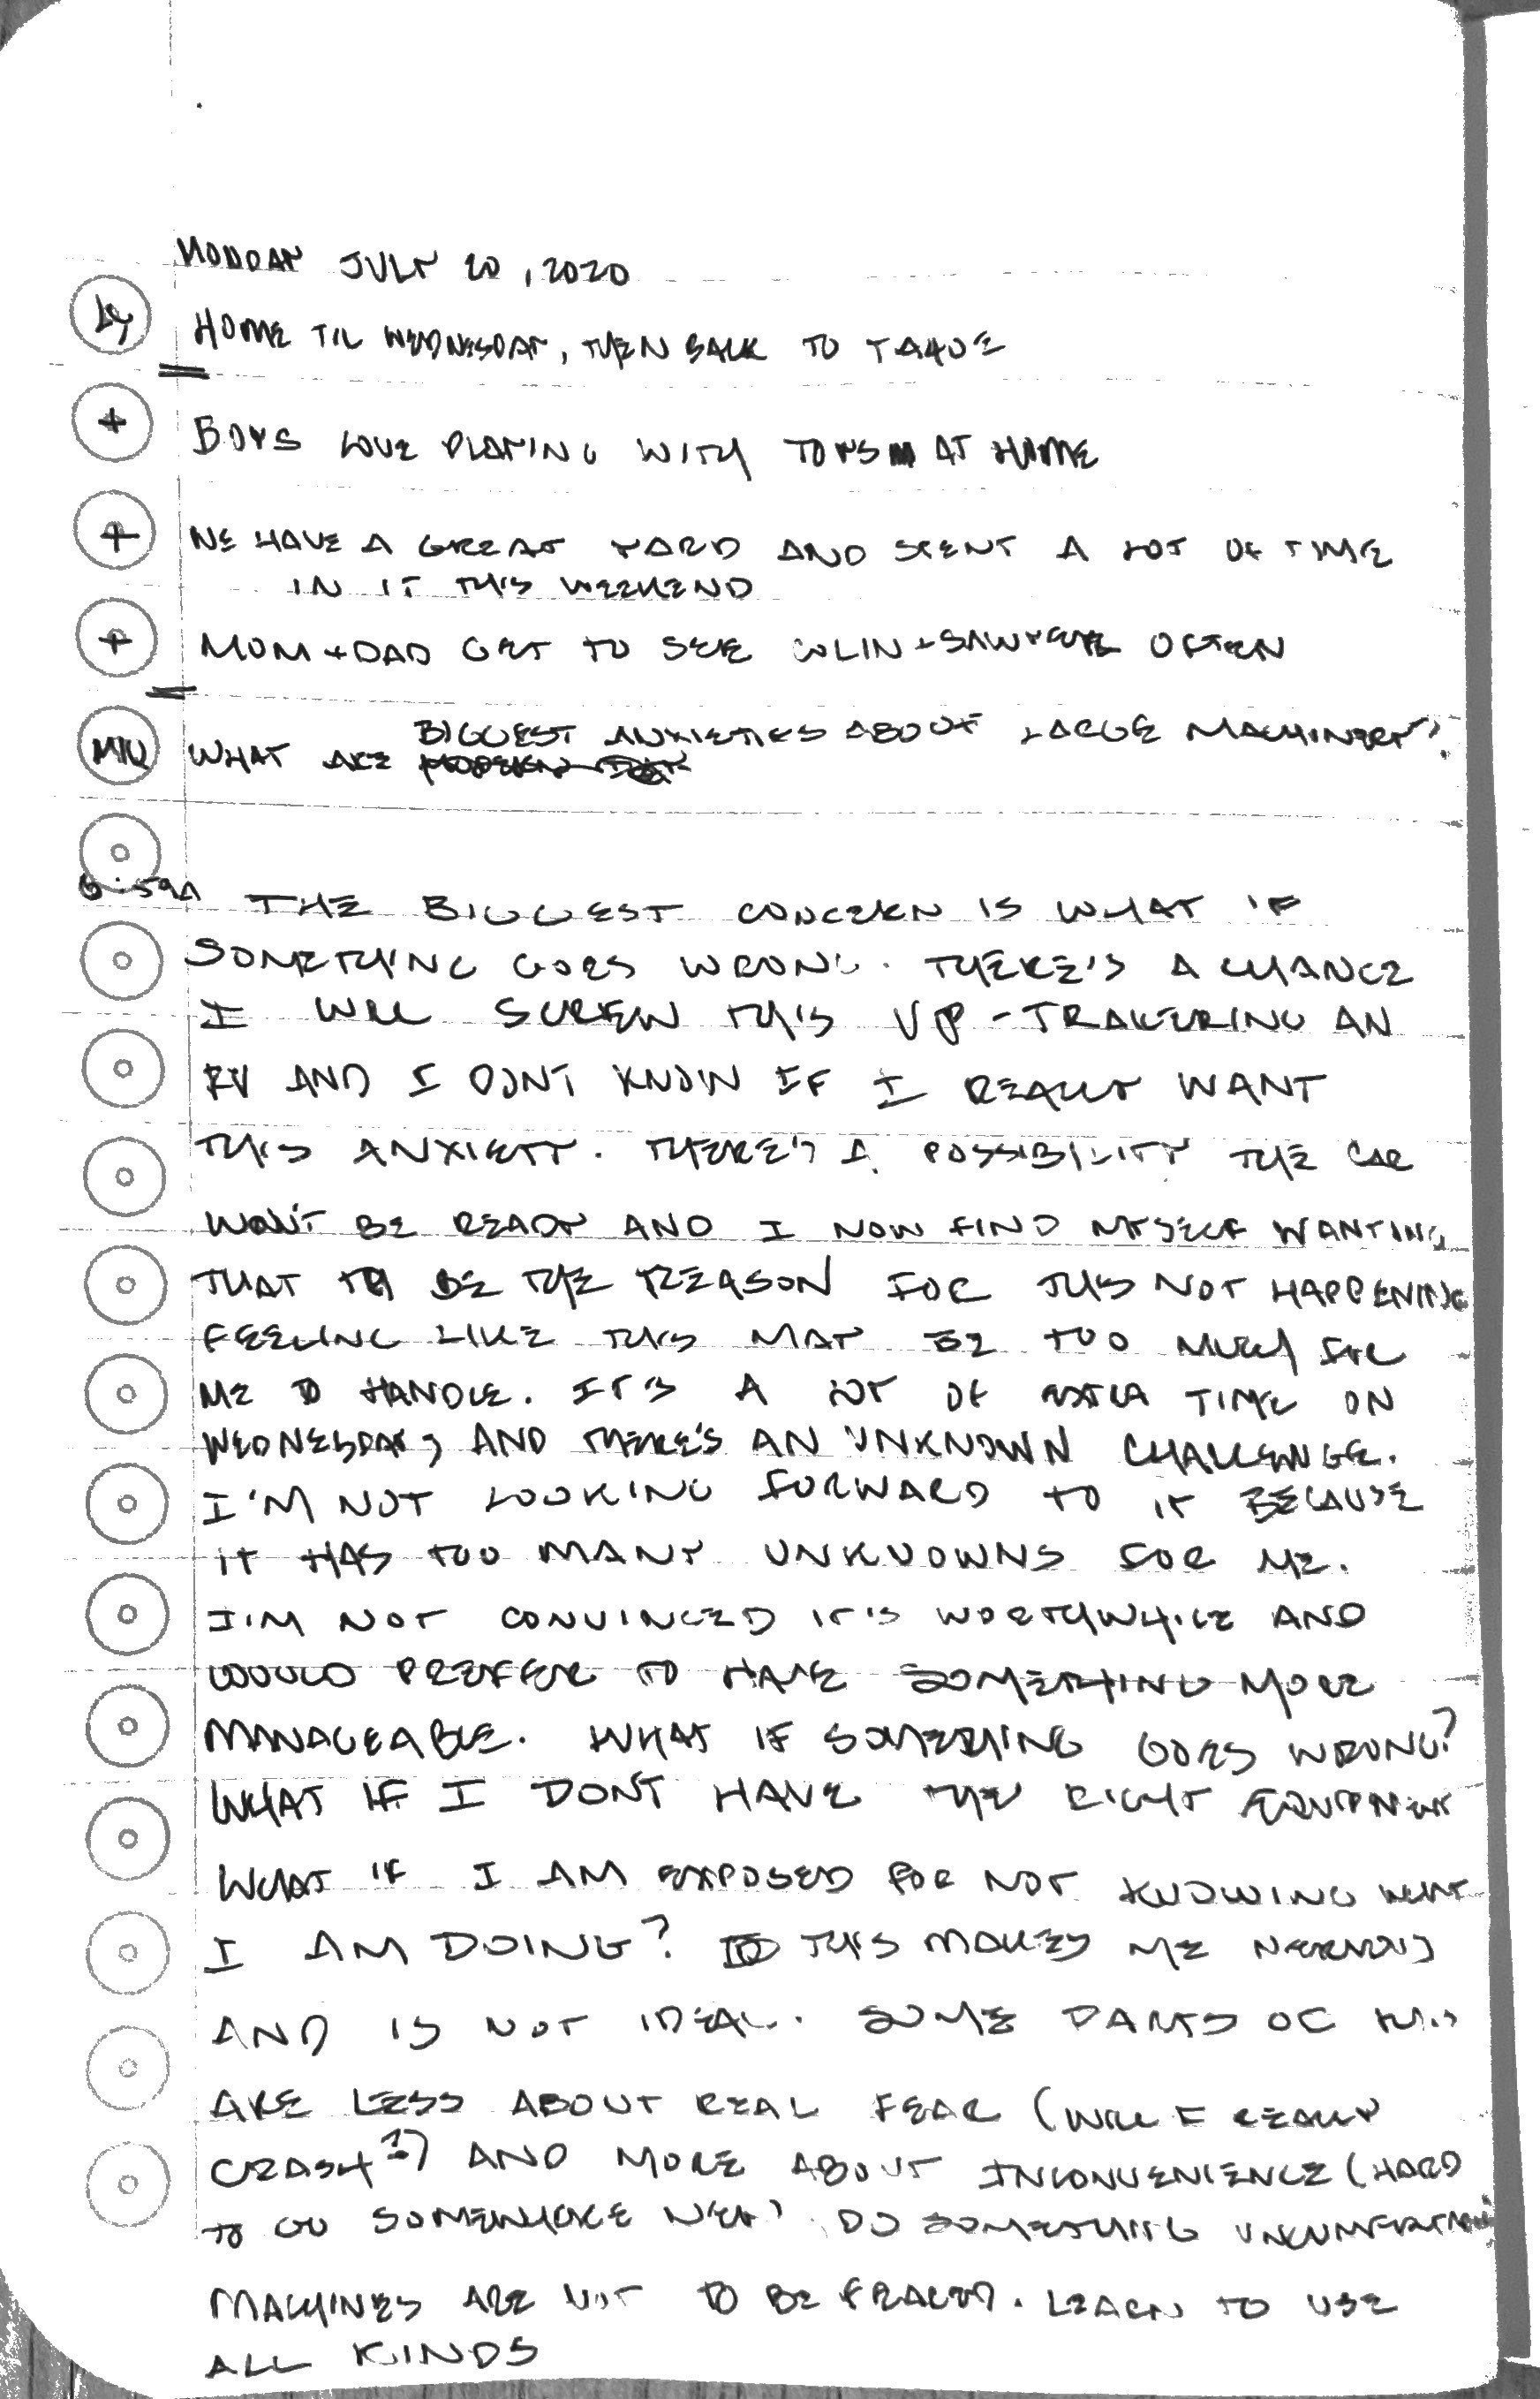 MONDAY JULY 20, 2020
HOME TIL WEDNESDAY, THEN BACK TO TAHOE
+ BOYS LOVE PLAYING WITH TOYS AT HOME
+ WE HAVE A GREAT YARD AND SPENT A LOT OF TIME
IN IT THIS WEEKEND
+ MOM + DAD GET TO SEE COLIN + SAWYER OFTEN
BIGGEST ANXIETIES ABOUT LARGE MACHINERY?
MIQ WHAT ARE
6:59A THE BIGGEST CONCERN IS WHAT IF
SOMETHING GOES WRONG. THERE'S A CHANCE
I WILL SCREW THIS UP - TRAILERING AN
RV AND I DONT KNOW IF I REALLY WANT
THIS ANXIETY. THERE'S A POSSIBILITY THE CAR
WON'T BE READY AND I NOW FIND MYSELF WANTING
THAT TO BE THE REASON FOR THIS NOT HAPPENING
FEELING LIKE THIS MAY BE TOO MUCH FOR
ME TO HANDLE. IT'S A LOT OF EXTRA TIME ON
WEDNESDAY, AND THERE'S AN UNKNOWN CHALLENGE.
I'M NOT LOOKING FORWARD TO IT BECAUSE
IT HAS TOO MANY UNKNOWNS FOR ME.
I'M NOT CONVINCED IT'S WORTHWHILE AND
WOULD PREFER TO HAVE SOMETHING MORE
MANAGEABLE. WHAT IF SOMETHING GOES WRONG?
WHAT IF I DONT HAVE THE RIGHT EQUIPMENT
WHAT IF I AM EXPOSED FOR NOT KNOWING WHAT
I AM DOING? THIS MAKES ME NERVOUS
AND IS NOT IDEAL. SOME PARTS OF THIS
ARE LESS ABOUT REAL FEAR (WILL I REALLY
CRASH?) AND MORE ABOUT INCONVENIENCE (HARD
TO GO SOMEWHERE NEW, DO SOMETHING UNCOMFORTABLE
MACHINES ARE NOT TO BE FEARED. LEARN TO USE
ALL KINDS